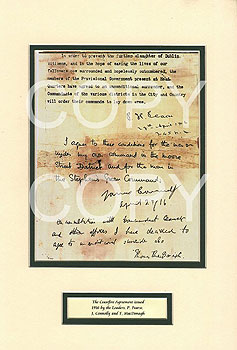 In order to prevent the further slaughter of Dublin
citizens, and in the hope of saving the lives of our
followers now surrounded and hopelessly outnumbered, the
members of the Provisional Government present at Head-
Quarters have agreed to an unconditional surrender, and the
Commandants of the various districts in the City and Country
will order their commands to lay down arms.
P. H. Pearse
I agree to these conditions for the men only
under my own command in the Moore
Street District and for the men in
the Stephen's Green Command.
James Connolly
April 29/16
On consultation with Commandant Ceannt
and other officers I have decided to
agree to unconditional surrender also
Thomas MacDonagh
COPY
COPY
The Ceasefire Agreement issued
1916 by the Leaders: P. Pearse,
J. Connolly and T. MacDonagh